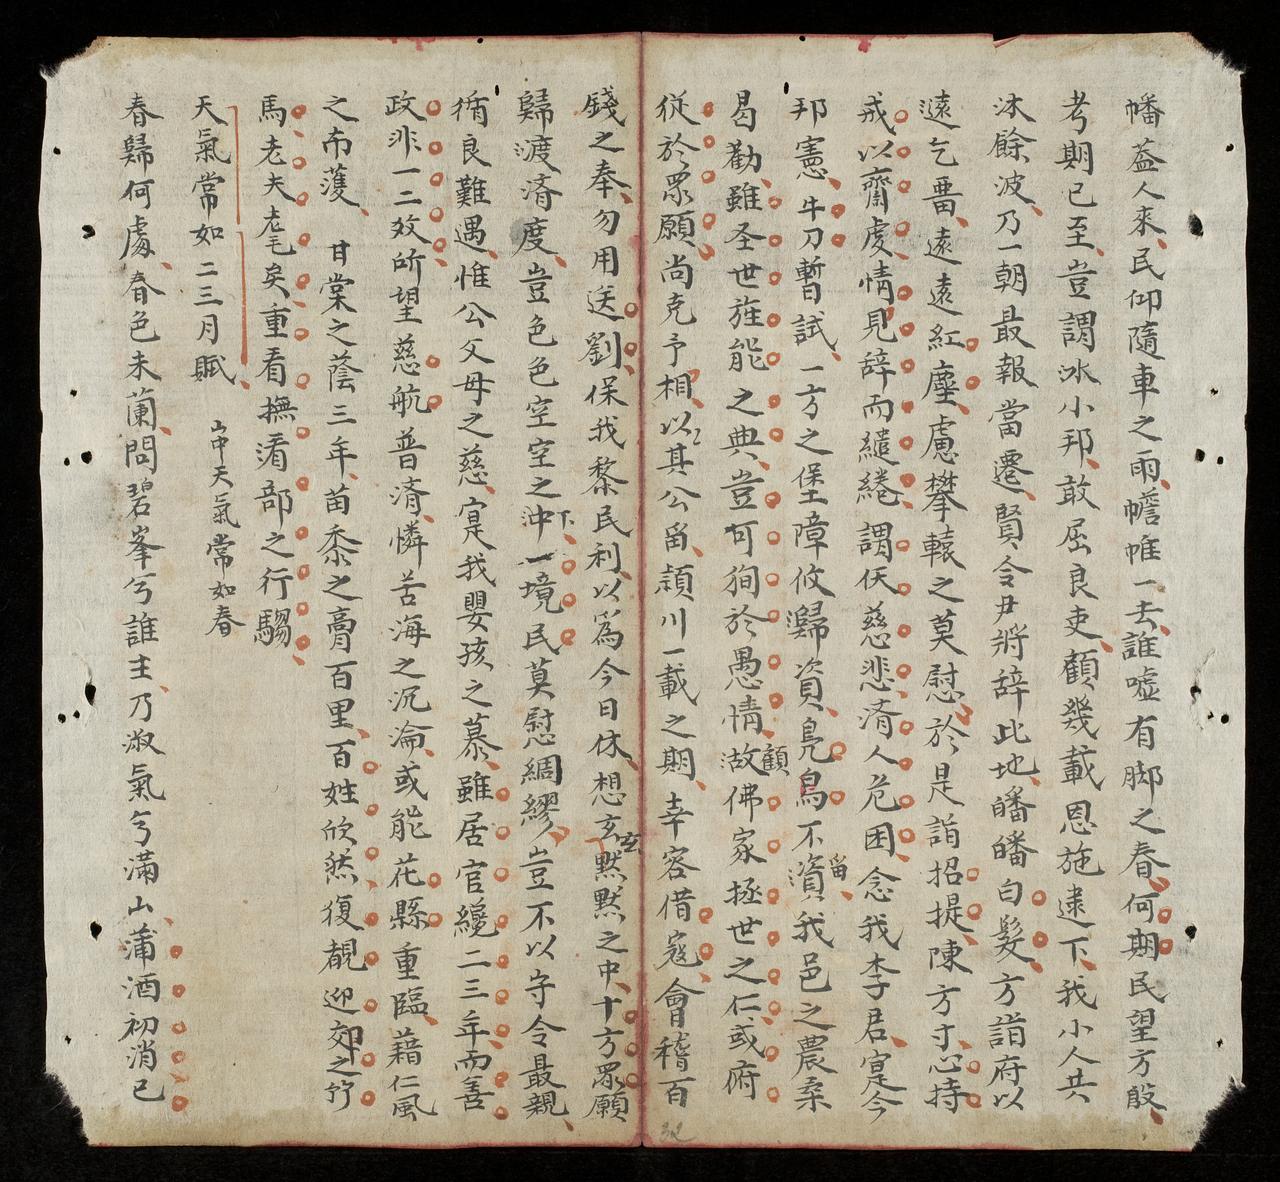 幡蓋人來民仰隨車之雨幨帷一去誰噓有脚之春何期民望方殷
考期已至豈謂冰小邦敢屈良吏顧幾載恩施逮下我小人共
沐餘波乃一朝最報當遷賢令尹將辞此地皤皤白髮方詣府以
遠乞畱遠遠紅塵慮攀轅之莫慰於是詣招提陳方寸心持
戒以齋虔情見辞而繾綣謂伏慈悲済人危困念我李君寔今
邦憲牛刀暫試一方之堡障攸歸資鳧舄不資畱我邑之農桑
曷勸雖圣世旌能之典豈可狥於愚情顧汝佛家拯世之仁或俯
從於眾願尚克予相以其公畱頴川一載之期幸容借寇會稽百
錢之奉勿用送劉保我黎民利以為今日休想玄玄默默之中十方眾願
歸渡済度豈色色空空之冲下一境民莫慰綢繆豈不以守令最親
循良難遇惟公父母之慈寔我嬰孩之慕雖居官纔二三年而善
政非一二效所望慈航普済憐苦海之沉淪或能花縣重臨藉仁風
之布濩 甘棠之蔭三年苗黍之膏百里百姓欣然復覩迎郊之竹
馬老夫耄矣重看撫部之行騶
天氣常如二三月賦 山中天氣常如春
春歸何處春色未蘭問碧峯兮誰主乃淑氣兮滿山蒲酒初消已
32